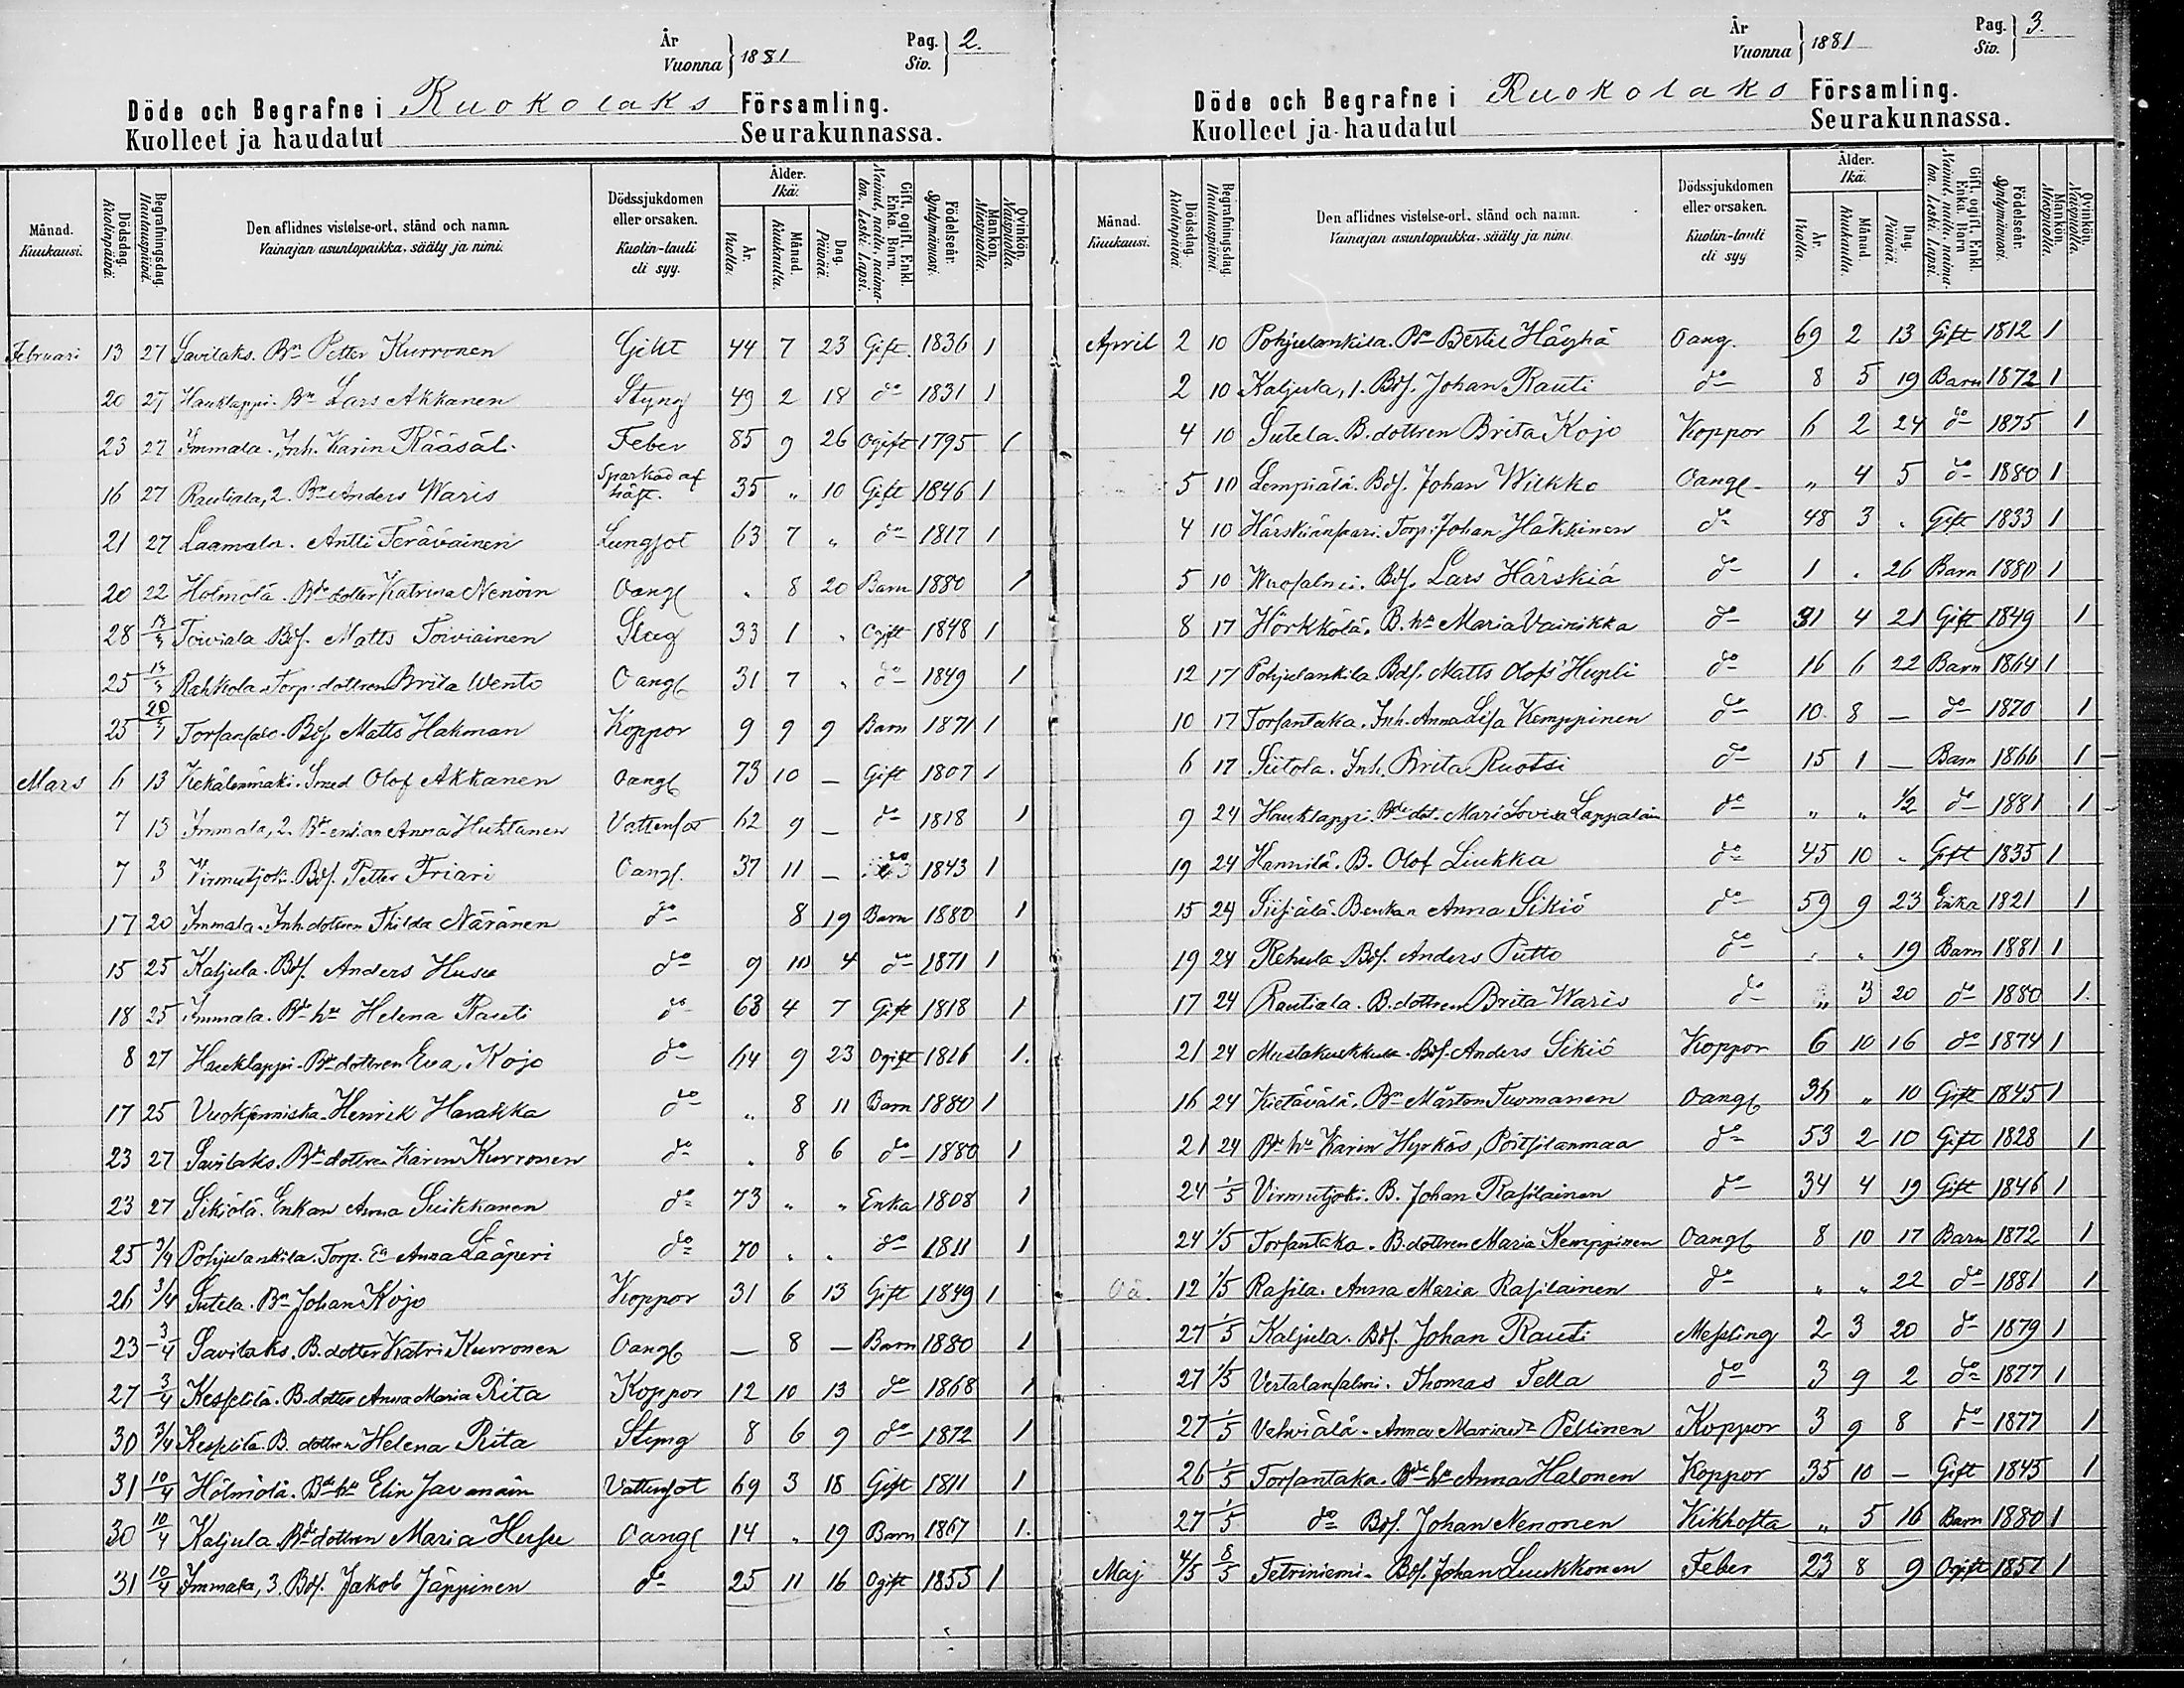 År
Vuonna } 1881
Pag.
Siv. } 2.
Döde och Begrafne i Ruokolaks Församling.
Kuolleet ja haudatut Seurakunnassa.
Månad. Kuukausi. Dödsdag. Kuolinpäivä. Begrafningsdag. Hautauspäivä. Den aflidnes vistelse-ort, stånd och namn. Vainajan asuntopaikka, sääty ja nimi. Dödssjukdomen eller orsaken. Kuolin-tauti eli syy. Ålder. Ikä. År. Vuotta. Månad. Kuukautta. Dag. Päivää. Gift, ogift, Enkl. Enka. Barn. Nainut, naitu, naimaton. Leski. Lapsi. Födelseår. Syntymävuosi. Mankön. Miespuolia. Qvinkön. Naispuolia.
Februari 13 27 Savilaks. Bn Petter Kurronen Gikt 44 7 23 Gift. 1836 1
20 27 Hauklappi. Bn Lars Akkanen Styng 49 2 18 do 1831 1
23 27 Immala. Inh. Karin Rääsäl. Feber 85 9 26 Ogift 1795 1
16 27 Rautiala, 2. Bn Anders Waris Sparkad af häst. 35 " 10 Gift 1846 1
21 27 Laamala. Antti Terävainen Lungsot 63 7 " do 1817 1
20 22 Holmölä. Bde dotter Katrina Nenoin Oangf " 8 20 Barn 1880 1
28 13/3 Toiviala Bds. Matts Toiviainen Slag 33 1 " Ogift 1848 1
25 13/3 Rahkola Torp. dottren Brita Wento Oangf 31 7 " do 1849 1
25 20/3 Torsansalo. Bds Matts Hakman Koppor 9 9 9 Barn 1871 1
Mars 6 13 Kekälenmäki. Smed Olof Akkanen Oangf 73 10 — Gift 1807 1
7 13 Immala, 2. Bde enkan Anna Huhtanen Vattensot 62 9 — do 1818 1
7 3 Virmutjoki. Bds. Petter Friari Oangf. 37 11 — do 1843 1
17 20 Immala. Inh. dottren Thilda Näränen do 8 19 Barn 1880 1
15 25 Kaljula. Bds. Anders Husu do 9 10 4 do 1871 1
18 25 Immala. Bde hu Helena Rauti do 63 4 7 Gift 1818 1
8 27 Hauklappi. Bde dottren Eva Kojo do 64 9 23 Ogift 1816 1.
17 25 Vuoksenniska Henrik Harakka do " 8 11 Barn 1880 1
23 27 Savilaks. Bde dottren Karin Kurronen do " 8 6 do 1880 1
23 27 Sikiölä. Enkan Anna Suikkanen do 73 " " Enka 1808 1
25 3/4 Pohjalankila. Torp. Ea Anna Lääperi do 70 " " do 1811 1
26 3/4 Sutela. Bn Johan Kojo Koppor 31 6 13 Gift 1849 1
23 3/4 Savilaks. B. dotter Katri Kurronen Oangf — 8 — Barn 1880 1
27 3/4 Kesselilä. B. dotter Anna Maria Rita Koppor 12 10 13 do 1868 1
30 3/4 B. dottren Helena Rita Styng 8 6 9 do 1872 1
31 10/4 Hölmölä. Bde hu Elin Vattensot 69 3 18 Gift 1811 1
30 10/4 Kaljula Bde dottren Maria Husu Oangf 14 " 19 Barn 1867 1.
31 10/4 Immala, 3. Bds. Jakob Jäppinen do 25 11 16 Ogift 1855 1
År
Vuonna } 1881
Pag.
Siv. } 3.
Döde och Begrafne i Ruokolaks Församling.
Kuolleet ja haudatut Seurakunnassa.
Månad. Kuukausi. Dödsdag. Kuolinpäivä. Begrafningsdag. Hautauspäivä. Den aflidnes vistelse-ort, stånd och namn. Vainajan asuntopaikka, sääty ja nimi. Dödssjukdomen eller orsaken. Kuolin-tauti eli syy Ålder. Ikä. År. Vuotta. Månad. Kuukautta. Dag. Päivää. Gift, ogift, Enkl. Enka. Barn. Nainut, naitu, naimaton. Leski. Lapsi. Födelseår. Syntymävuosi. Mankön. Miespuolia. Qvinkön. Naispuolia.
April 2 10 Pohjalankila. Bn Bertil Häyhä Oang. 69 2 13 Gift 1812 1
2 10 Kaljula, 1. Bds. Johan Rauti do 8 5 19 Barn 1872 1
4 10 Sutela. B. dottren Brita Kojo Koppor 6 2 24 do 1875 1
5 10 Lempiälä. Bds. Johan Wilkko Oangf " 4 5 do 1880 1
4 10 Härskiänsaari. Torp. Johan Häkkinen do 48 3 " Gift 1833 1
5 10 Wuosalmi. Bds. Lars Härskiä do 1 " 26 Barn 1880 1
8 17 Hörkkölä. B. hu Maria Vainikka do 31 4 21 Gift 1849 1
12 17 Pohjalankila. Bds. Matts Olofs Hupli do 16 6 22 Barn 1864 1
10 17 Torsantaka. Inh. Anna Lisa Kemppinen do 10 8 — do 1870 1
6 17 Siitola. Inh. Brita Ruotsi do 15 1 — Barn 1866 1
9 24 Hauklappi. Bde dot. Mari Lovisa Lappalain do " " 1/2 do 1881 1
19 24 Hannilä. B. Olof Liukka do 45 10 " Gift 1835 1
15 24 Siisiälä. B. enkan Anna Sikiö do 59 9 23 Enka 1821 1
19 24 Rehula Bds. Anders Putto do " " 19 Barn 1881 1
17 24 Rautiala. B. dottren Brita Waris do " 3 20 do 1880 1.
21 24 Bds. Anders Sikiö Koppor 6 10 16 do 1874 1
16 24 Kietävälä. Bn Mårten Tuomanen Oangf 36 " 10 Gift 1845 1
21 24 Bde hu Karin Hyrkäs, Pöitsilanmaa do 53 2 10 Gift 1828 1
24 1/5 Virmutjoki. B. Johan Rasilainen do 34 4 19 Gift 1846 1
24 1/5 Torsantaka. B. dottren Maria Kemppinen Oangf 8 10 17 Barn 1872 1
12 1/5 Rasila. Anna Maria Rasilainen do " " 22 do 1881 1
27 1/5 Kaljula. Bds. Johan Rauti Messling 2 3 20 do 1879 1
27 1/5 Thomas Tella do 3 9 2 do 1877 1
27 1/5 Vehviälä. Anna Pellinen Koppor 3 9 8 do 1877 1
26 1/5 Torsantaka. Bde hu Anna Halonen Koppor 35 10 — Gift 1845 1
27 1/5 do Bds. Johan Nenonen Kikhosta " 5 16 Barn 1880 1
Maj 4/5 8/5 Tetriniemi. Bds. Johan Luukkonen Feber 23 8 9 Ogift 1857 1